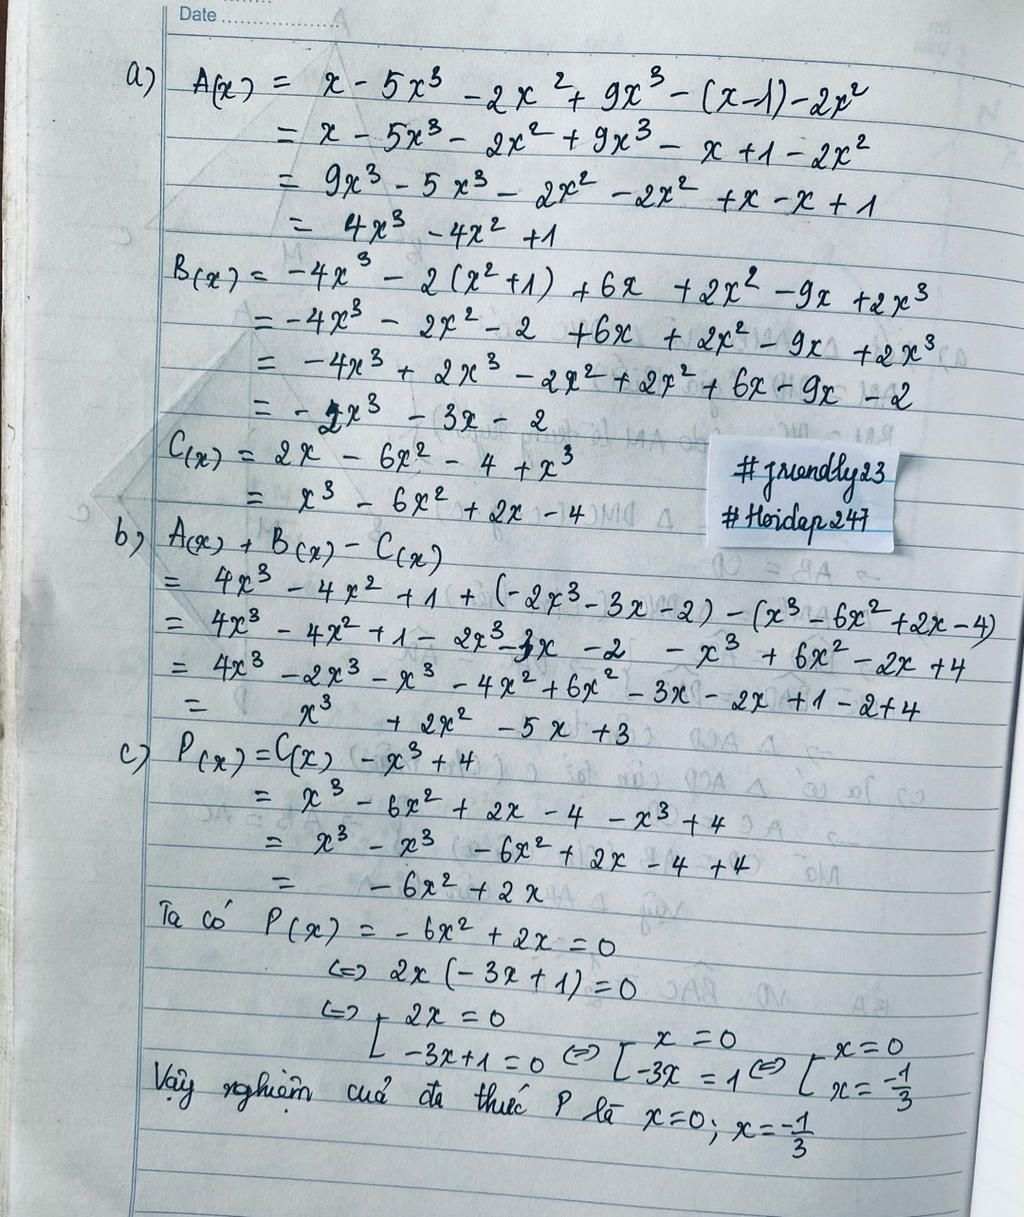 Date
a) A(x) = x - 5x³ - 2x² + 9x³ - (x-1) - 2x²
= x - 5x³ - 2x² + 9x³ - x + 1 - 2x²
= 9x³ - 5x³ - 2x² - 2x² + x - x + 1
= 4x³ - 4x² + 1
B(x) = -4x³ - 2(x²+1) + 6x + 2x² - 9x + 2x³
= -4x³ - 2x² - 2 + 6x + 2x² - 9x + 2x³
= -4x³ + 2x³ - 2x² + 2x² + 6x - 9x - 2
= -2x³ - 3x - 2
C(x) = 2x - 6x² - 4 + x³
= x³ - 6x² + 2x - 4
#friendly23
#Hoidap247
b) A(x) + B(x) - C(x)
= 4x³ - 4x² + 1 + (-2x³ - 3x - 2) - (x³ - 6x² + 2x - 4)
= 4x³ - 4x² + 1 - 2x³ - 3x - 2 - x³ + 6x² - 2x + 4
= 4x³ - 2x³ - x³ - 4x² + 6x² - 3x - 2x + 1 - 2 + 4
= x³ + 2x² - 5x + 3
c) P(x) = C(x) - x³ + 4
= x³ - 6x² + 2x - 4 - x³ + 4
= x³ - x³ - 6x² + 2x - 4 + 4
= - 6x² + 2x
Ta có P(x) = - 6x² + 2x = 0
<=> 2x (- 3x + 1) = 0
<=> [ 2x = 0 x = 0 x = 0
-3x + 1 = 0 <=> [ -3x = 1 <=> [ x = -1/3
Vậy nghiệm cuả đa thức P là x = 0; x = -1/3